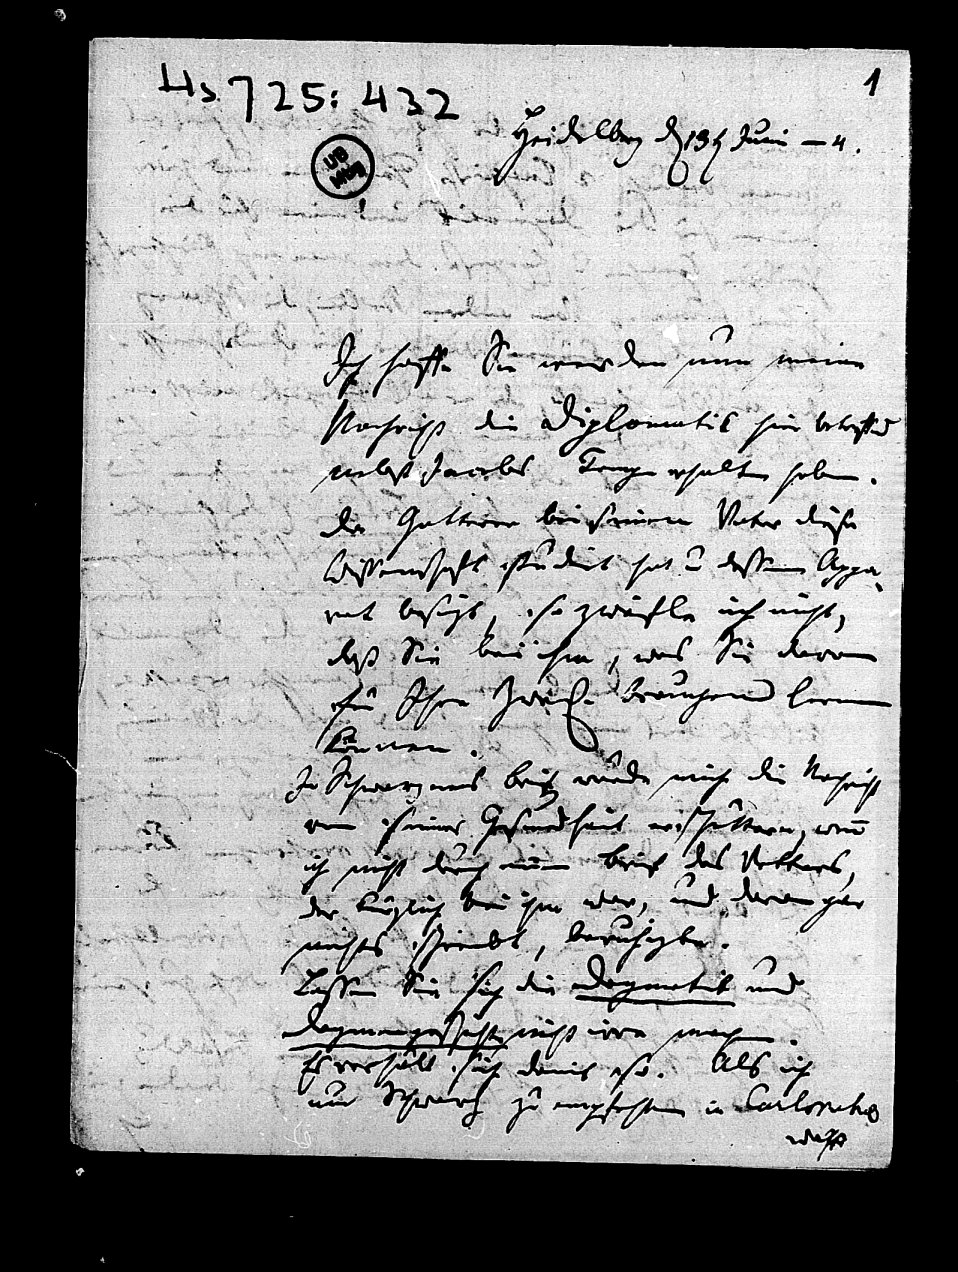 Hs 725: 432
1
UB MARB
Heidelberg d 13t Juni – 4.
Ich hoffe Sie werden nun meine
Nachricht die Diplomatik hier betreffend
nebst Jacobs erhalten haben.
Da Gatterer bei seinem Vater diese
Wissenschaft studiert hat u dessen Appa-
rat besizt, so zweifle ich nicht,
daß Sie bei ihm, was Sie davon
für Ihren Zweck brauchen lernen
können.
In Schwarzens Brief würde mich die Nachricht
von seiner Gesundheit erschüttern, wenn
ich nicht durch einen Brief des Vetters,
der kürzlich bei ihm war, und davon gar
nichts schreibt, beruhigt.
Lassen Sie sich die Dogmatik und
Dogmengeschichte nicht irre machen.
Es verhält sich damit so. Als ich
um Schwarz zu empfehlen in Carlsruhe